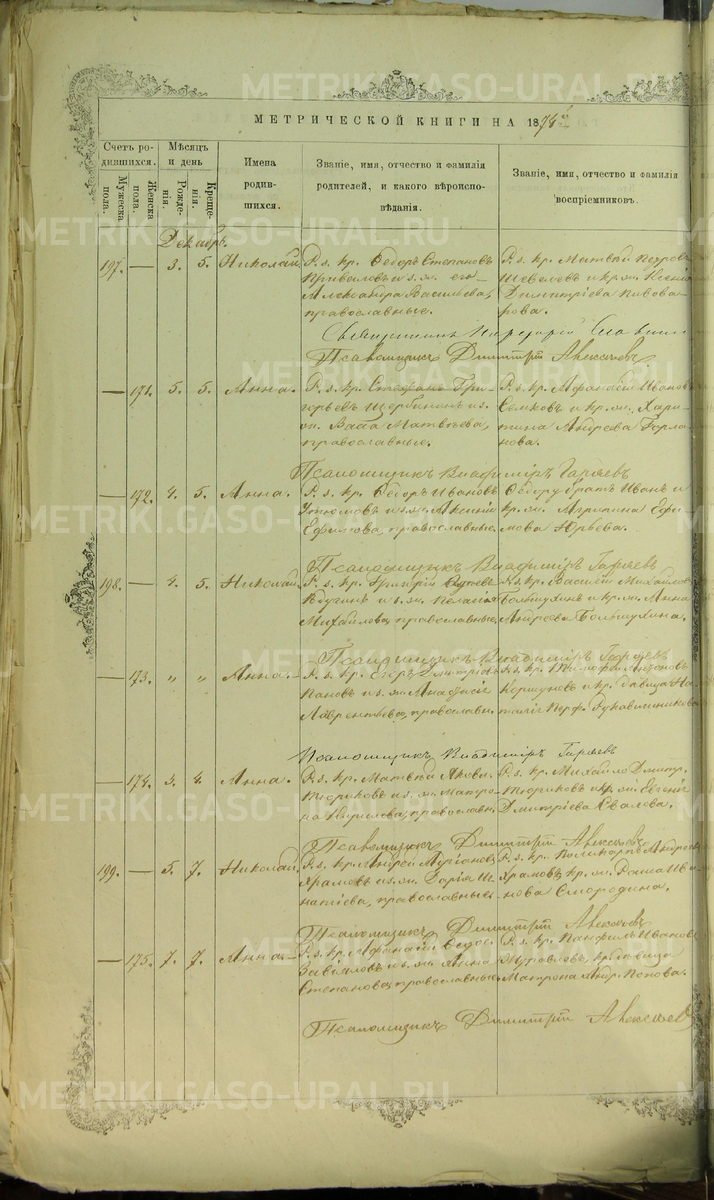 METRIKI.GASO-URAL.RU
МЕТРИЧЕСКОЙ КНИГИ НА 1874
Счетъ ро-
дившихся.
Мужеска
пола.
Женска
пола.
Мѣсяцъ
и день
Рожде-
нія.
Креще-
нія.
Имена
родив-
шихся.
Званіе, имя, отчество и фамилія
родителей, и какого вѣроиспо-
вѣданія.
Званіе, имя, отчество и фамилія
воспріемниковъ.
Декабрь.
197. — 3. 5. Николай
Р. з. кр. Ѳедоръ Степановъ
Приваловъ и з. ж. его
Александра Васильева,
православные.
Р. з. кр. Матвѣй Петровъ
Шевелевъ и кр. ж. Ксенія
Димитріева Пивова-
рова.
Священникъ
Псаломщикъ Димитрій Алексѣевъ
— 171. 5. 5. Анна.
Р. з. кр. Стефанъ Гри-
горьевъ Щербининъ и з.
ж. Матвѣева,
православные.
Р. з. кр. Аѳанасій Ивановъ
и кр. ж. Хари-
тина Андреева
Псаломщикъ Владиміръ Гаряевъ
— 172. 4. 5. Анна.
Р. з. кр. Ѳедоръ Ивановъ
и з. ж. Аксинія
Ефимова, православные.
Ѳедору братъ Иванъ и
кр. ж. Агрипина Ефи-
мова Юрьева.
Псаломщикъ Владиміръ Гаряевъ
198. — 4. 5. Николай.
Р. з. кр. Григорій
и з. ж. Пелагія
Михайлова, православные.
Р. з. кр. Василій Михайловъ
Болтухинъ и кр. ж. Анна
Андреева Болтухина.
Псаломщикъ Владиміръ Гаряевъ
— 173. „ „ Анна.
Р. з. кр. Егоръ Дмитріевъ
Пановъ и з. ж. Анафасія
Лаврентьева, православн.
Р. з. кр.
Коршуновъ и кр. дѣвица На-
талія Перф. Рукавишникова
Псаломщикъ Владиміръ Гаряевъ
— 174. 3. 4. Анна.
Р. з. кр. Матвѣй Яковл.
Тюриковъ и з. ж. Матро-
на Кирилова, православн.
Р. з. кр. Михайло Дмитр.
Тюриковъ и кр. ж. Евгенія
Дмитріева
Псаломщикъ Димитрій Алексѣевъ
199. — 5. 7. Николай.
Р. з. кр. Андрей
Храмовъ и з. ж. Дарія И-
натіева, православные.
Р. з. кр. Поликарпъ Андреевъ
Храмовъ, кр. ж. Ива-
нова Смородина.
Псаломщикъ Димитрій Алексѣевъ
— 175. 7. 7. Анна.
Р. з. кр. Аѳанасій Ѳедос.
Завьяловъ и з. ж. Анна
Степанова, православные.
Р. з. кр. Панфилъ Ивановъ
кр. дѣвица
Матрона Андр. Попова.
Псаломщикъ Димитрій Алексѣевъ